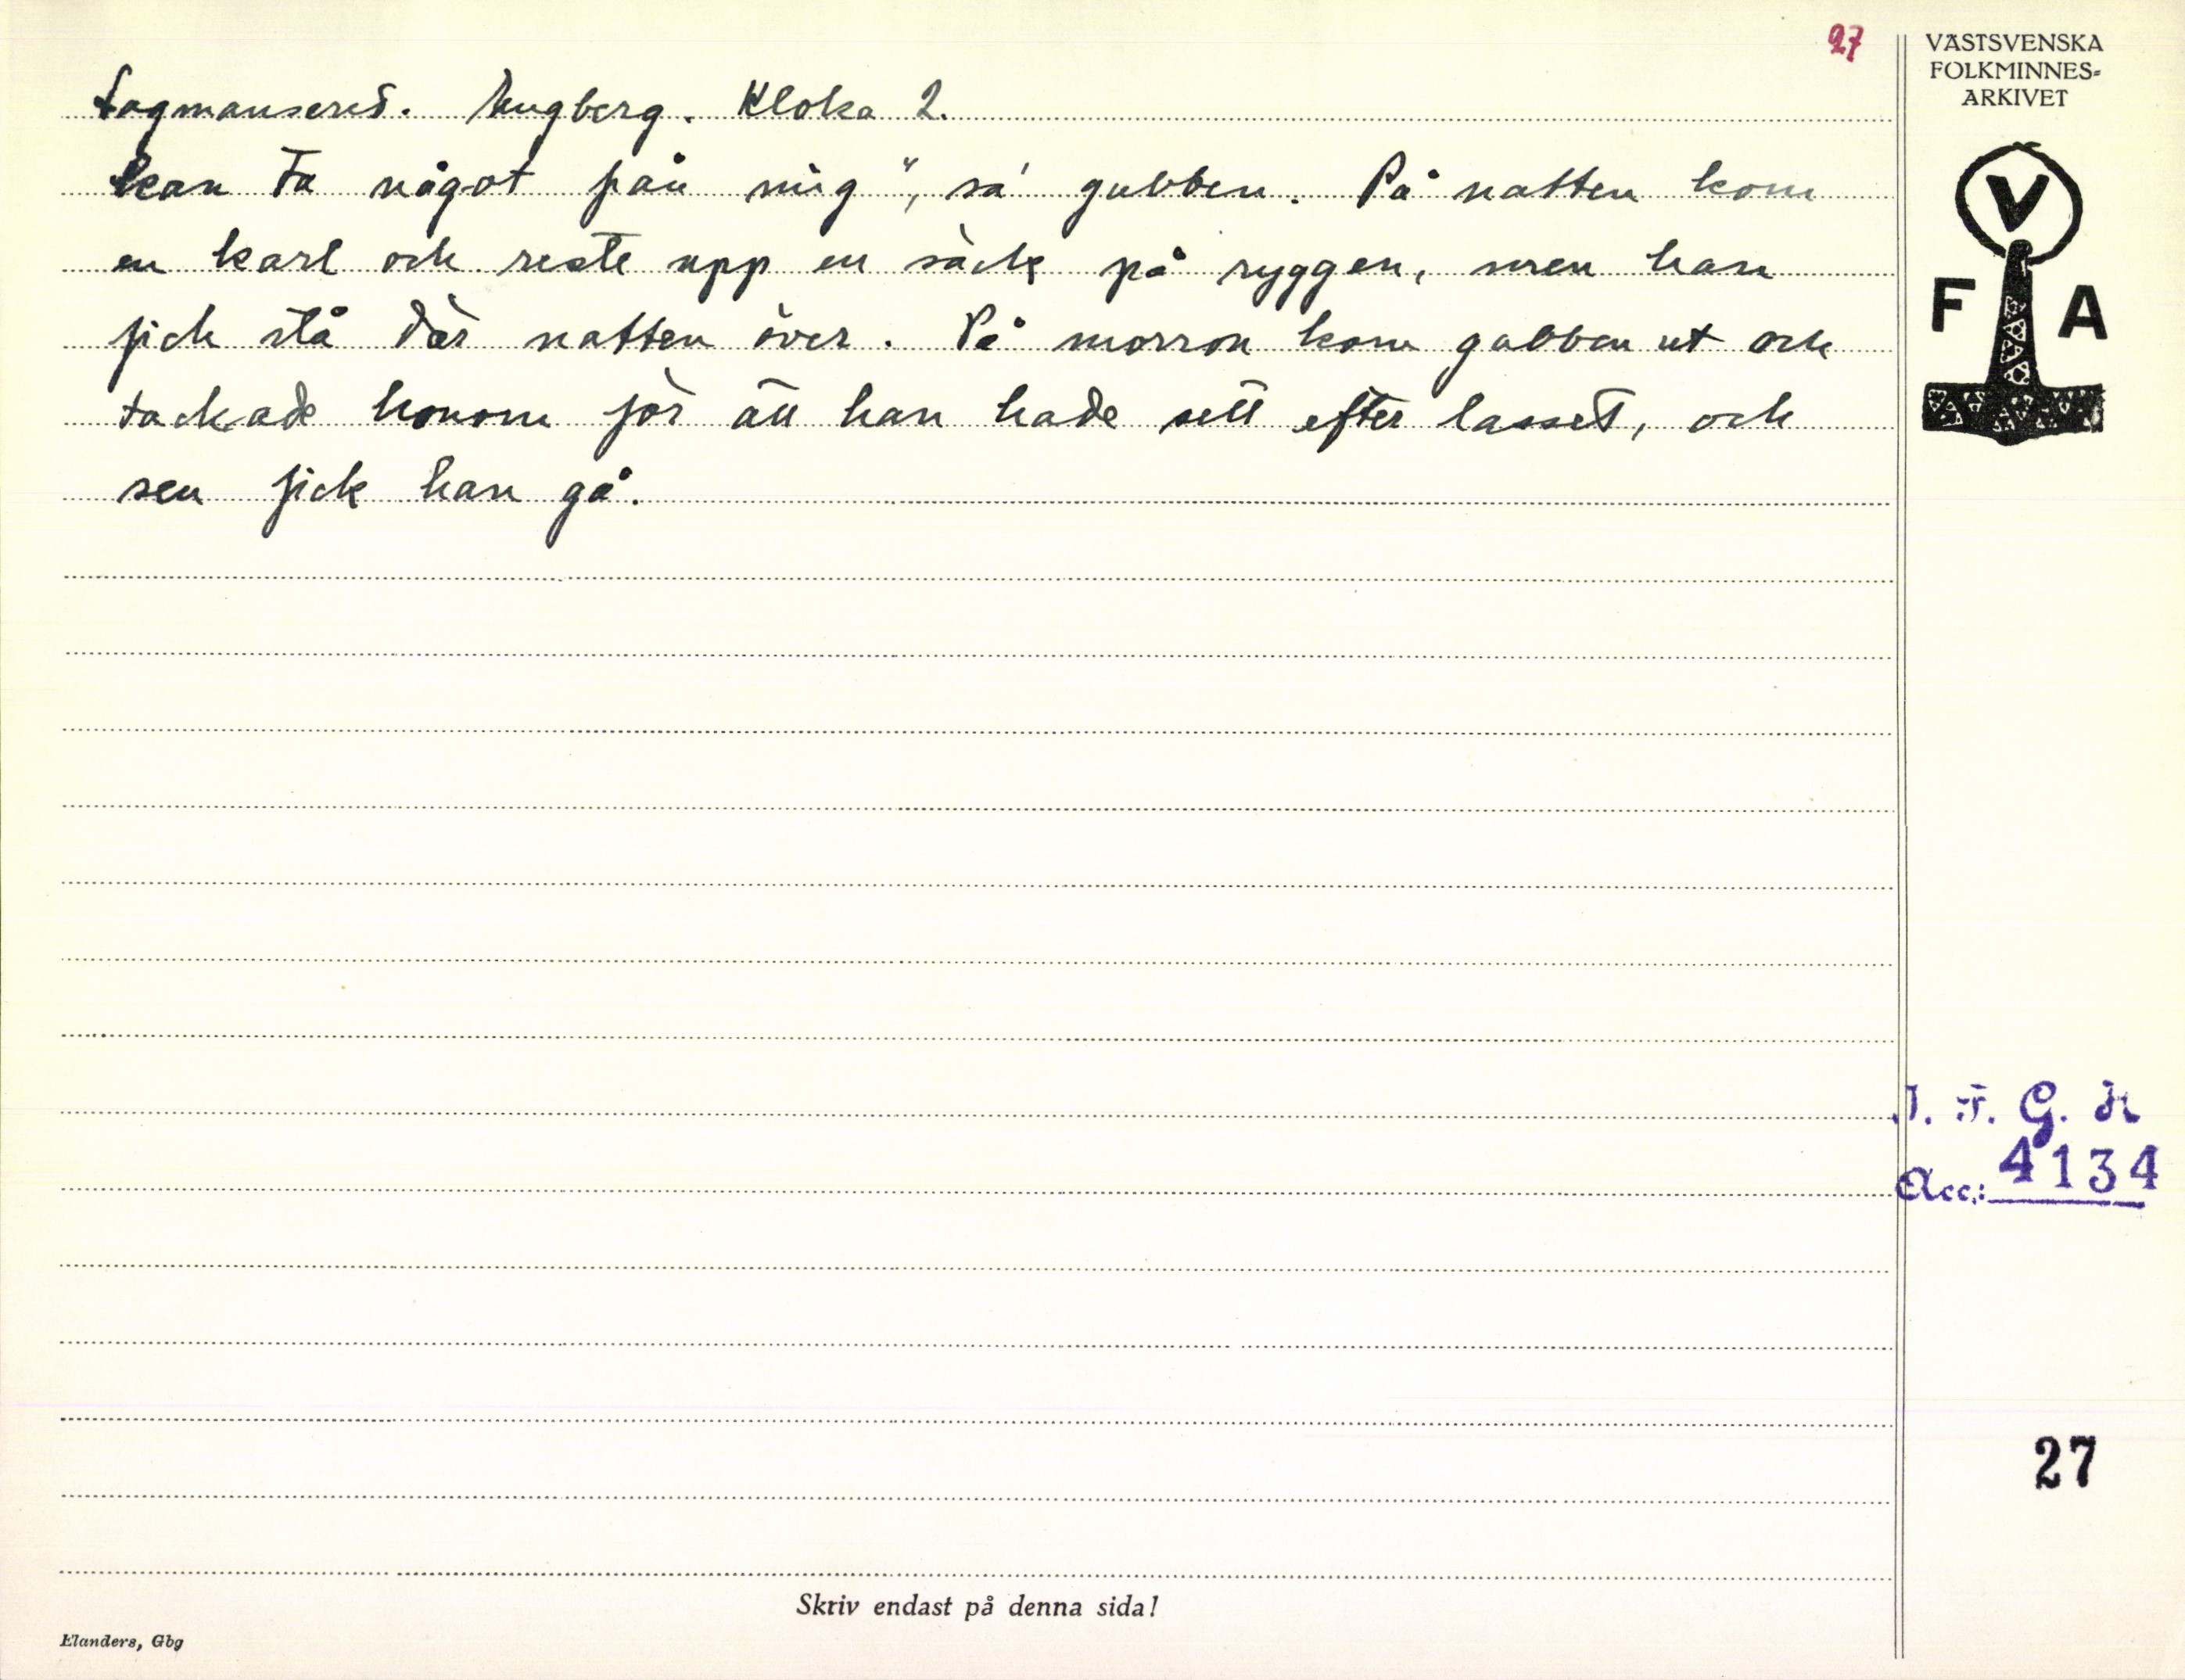 27
VÄSTSVENSKA
FOLKMINNES-
ARKIVET
Lagmansered. Ungberg. Kloka 2.
kan ta något från mig", sa' gubben. På natten kom
en karl och reste upp en säck på ryggen, men han
fick stå där natten över. På morron kom gubben ut och
tackade honom för att han hade sett efter lasset, och
sen fick han gå.
V
F A
I. F. G. H
Acc.: 4134
27
Skriv endast på denna sida!
Elanders, Gbg